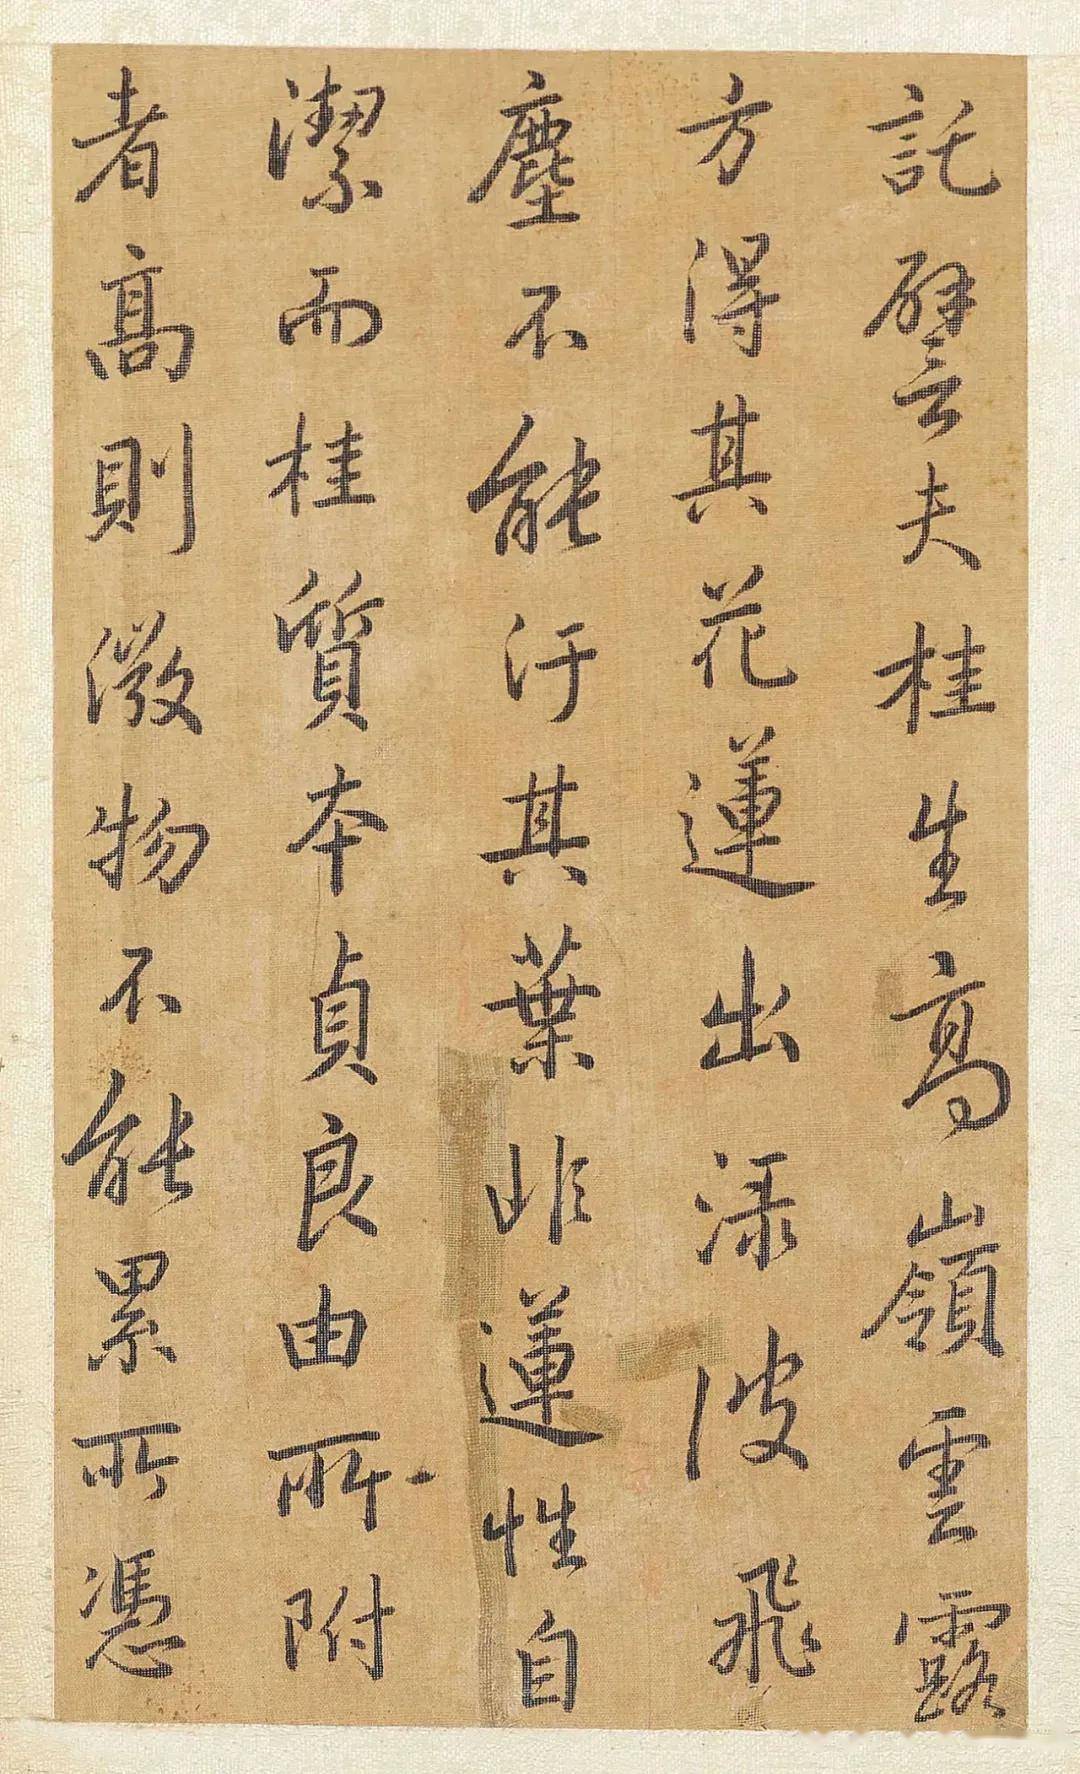 託譬夫桂生高嶺雲露
方得其花蓮出淥波飛
塵不能汙其葉非蓮性自
潔而桂質本貞良由所附
者高則微物不能累所憑